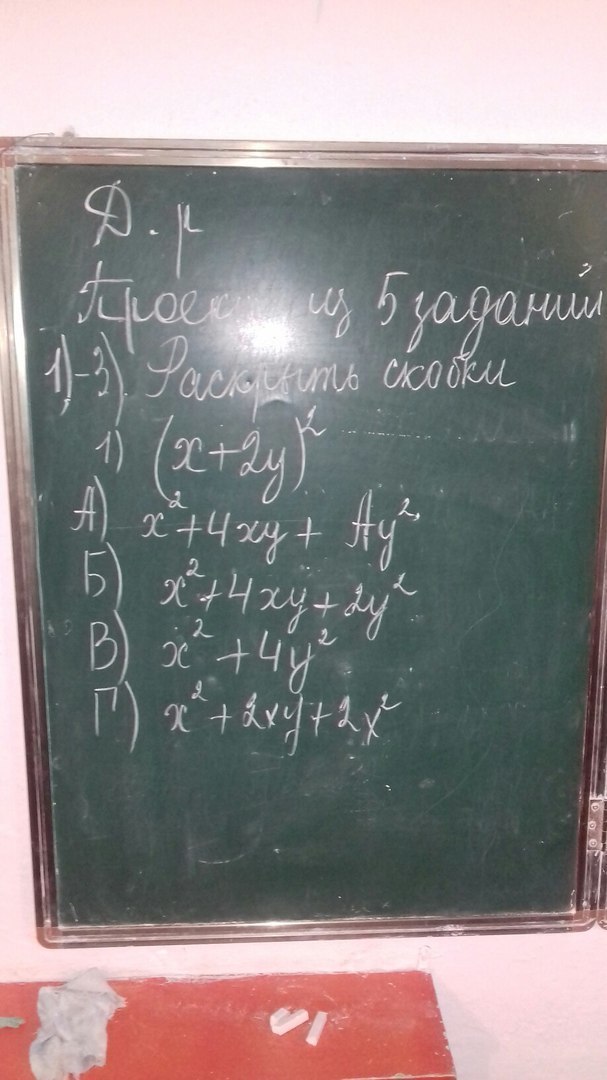 Д.р
Проект из 5 заданий
1)-3) Раскрыть скобки
1) (x+2y)²
А) x²+4xy+ 4y²
Б) x²+4xy+2y²
В) x²+4y²
Г) x²+2xy+2x²